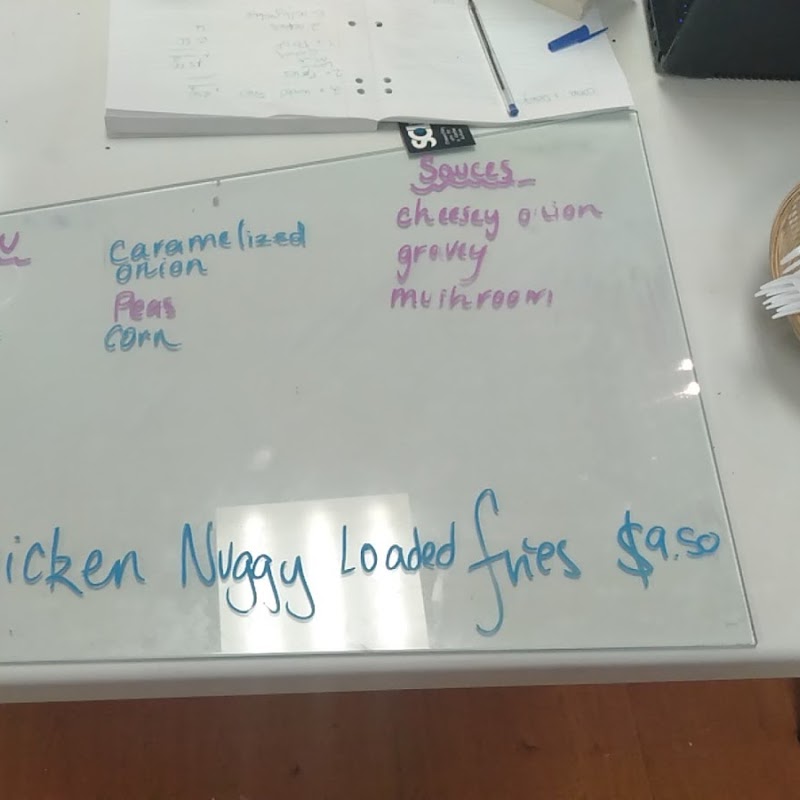 Sauces
cheesey onion
gravey
mushroom
Caramelized
onion
Peas
corn
icken Nuggy Loaded fries $9.50